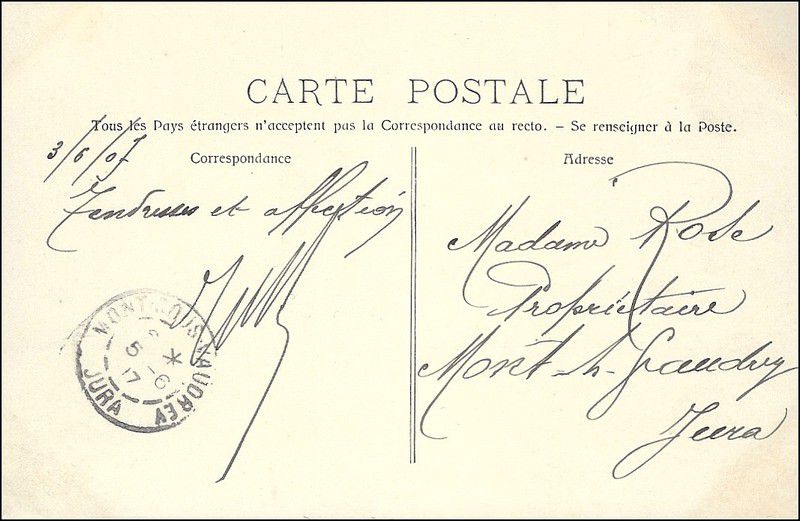 CARTE POSTALE
Tous les Pays étrangers n'acceptent pas la Correspondance au recto. – Se renseigner à la Poste.
3/6/07
Correspondance
Tendresses et affection
Adresse
Madame Rose
Propriétaire
Mont-s-Vaudrey
Jura
MONT-SOUS-VAUDREY
JURA